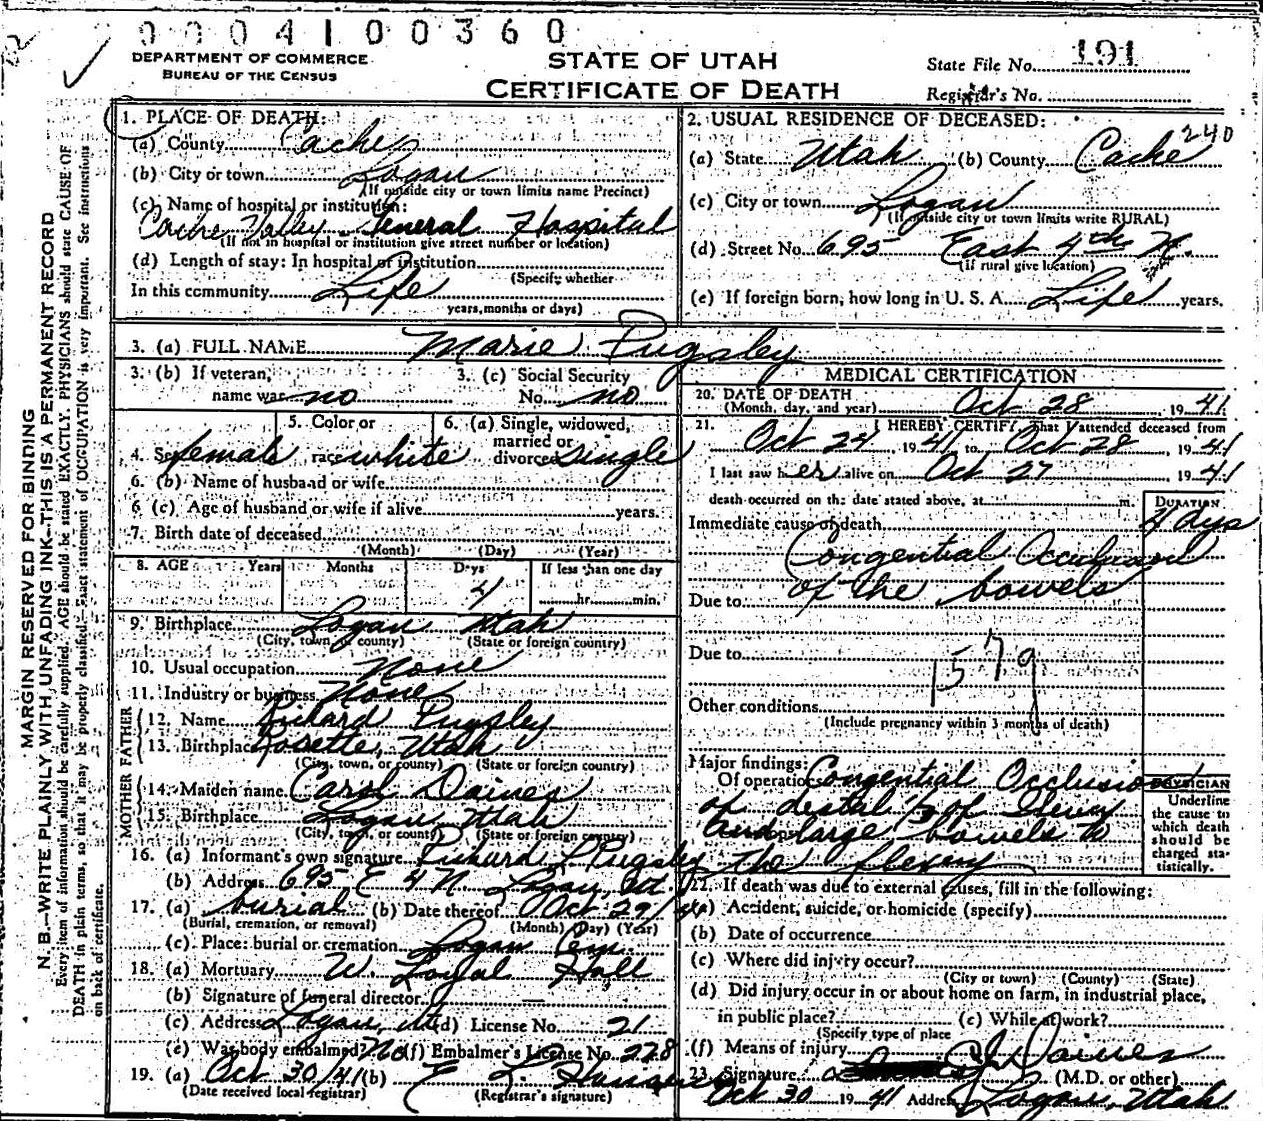 0004100360
DEPARTMENT OF COMMERCE
BUREAU OF THE CENSUS
STATE OF UTAH
CERTIFICATE OF DEATH
State File No. 191
Registrar's No.
MARGIN RESERVED FOR BINDING
N. B.—WRITE PLAINLY WITH UNFADING INK—THIS IS A PERMANENT RECORD
Every item of information should be carefully supplied. AGE should be stated EXACTLY. PHYSICIANS should state CAUSE OF
DEATH in plain terms, so that it may be properly classified. Exact statement of OCCUPATION is very important. See instructions
on back of certificate.
1. PLACE OF DEATH:
(a) County Cache
(b) City or town Logan
(If outside city or town limits name Precinct)
(c) Name of hospital or institution:
Cache Valley General Hospital
(If not in hospital or institution give street number or location)
(d) Length of stay: In hospital or institution
(Specify whether
In this community Life
years, months or days)
2. USUAL RESIDENCE OF DECEASED:
240
(a) State Utah (b) County Cache
(c) City or town Logan
(If outside city or town limits write RURAL)
(d) Street No. 695 East 4th N.
(If rural give location)
(e) If foreign born, how long in U. S. A. Life years.
3. (a) FULL NAME Marie Pugsley
3. (b) If veteran,
name war no
3. (c) Social Security
No. no
4. Sex female
5. Color or
race white
6. (a) Single, widowed,
married or
divorced single
6. (b) Name of husband or wife
6 (c) Age of husband or wife if alive years.
7. Birth date of deceased
(Month) (Day) (Year)
8. AGE Years Months Days If less than one day
4 hr. min.
9. Birthplace Logan Utah
(City, town, or county) (State or foreign country)
10. Usual occupation None
11. Industry or business None
FATHER
12. Name Richard Pugsley
13. Birthplace Rosette, Utah
(City, town, or county) (State or foreign country)
MOTHER
14. Maiden name Carol Daines
15. Birthplace Logan, Utah
(City, town, or county) (State or foreign country)
16. (a) Informant's own signature Richard L Pugsley
(b) Address 695 E 4 N Logan, Ut.
17. (a) burial (b) Date thereof Oct 29/41
(Burial, cremation, or removal) (Month) (Day) (Year)
(c) Place: burial or cremation Logan Cem.
18. (a) Mortuary W. Loyal Hall
(b) Signature of funeral director
(c) Address Logan, Utah (d) License No. 21
(e) Was body embalmed? No (f) Embalmer's License No. 228
19. (a) Oct 30/41 (b) E. L. Hansen
(Date received local registrar) (Registrar's signature)
MEDICAL CERTIFICATION
20. DATE OF DEATH
(Month, day, and year) Oct 28, 1941.
21. I HEREBY CERTIFY, That I attended deceased from
Oct 24, 1941 to Oct 28, 1941
I last saw her alive on Oct 27, 1941
death occurred on the date stated above, at m.
DURATION
Immediate cause of death 4 dys
Congential Occlusion
of the bowels
Due to
Due to
1579
Other conditions
(Include pregnancy within 3 months of death)
Major findings:
Of operations Congential Occlusion
of distal 1/3 of
and large bowels to
the flexure
PHYSICIAN
Underline
the cause to
which death
should be
charged sta-
tistically.
22. If death was due to external causes, fill in the following:
(a) Accident, suicide, or homicide (specify)
(b) Date of occurrence
(c) Where did injury occur?
(City or town) (County) (State)
(d) Did injury occur in or about home on farm, in industrial place,
in public place? (e) While at work?
(Specify type of place
(f) Means of injury
23. Signature Daines (M.D. or other)
Oct 30 1941 Address Logan, Utah